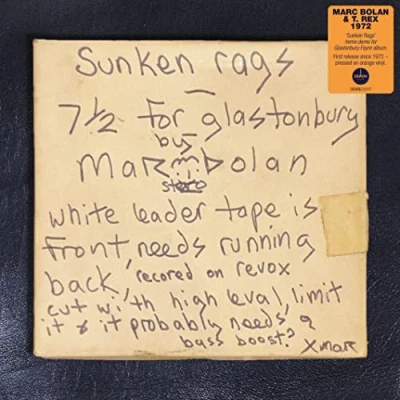 MARC BOLAN
& T. REX
1972
'Sunken Rags'
home demo for
Glastonbury Fayre album.
First release since 1972 –
pressed on orange vinyl.
DEMON
sunken rags
7½ for glastonbury
by
MaRc bolan
stereo
white leader tape is
front, needs running
back, recored on revox
cut with high leval, limit
it & it probably needs a
bass boost?
XmaR